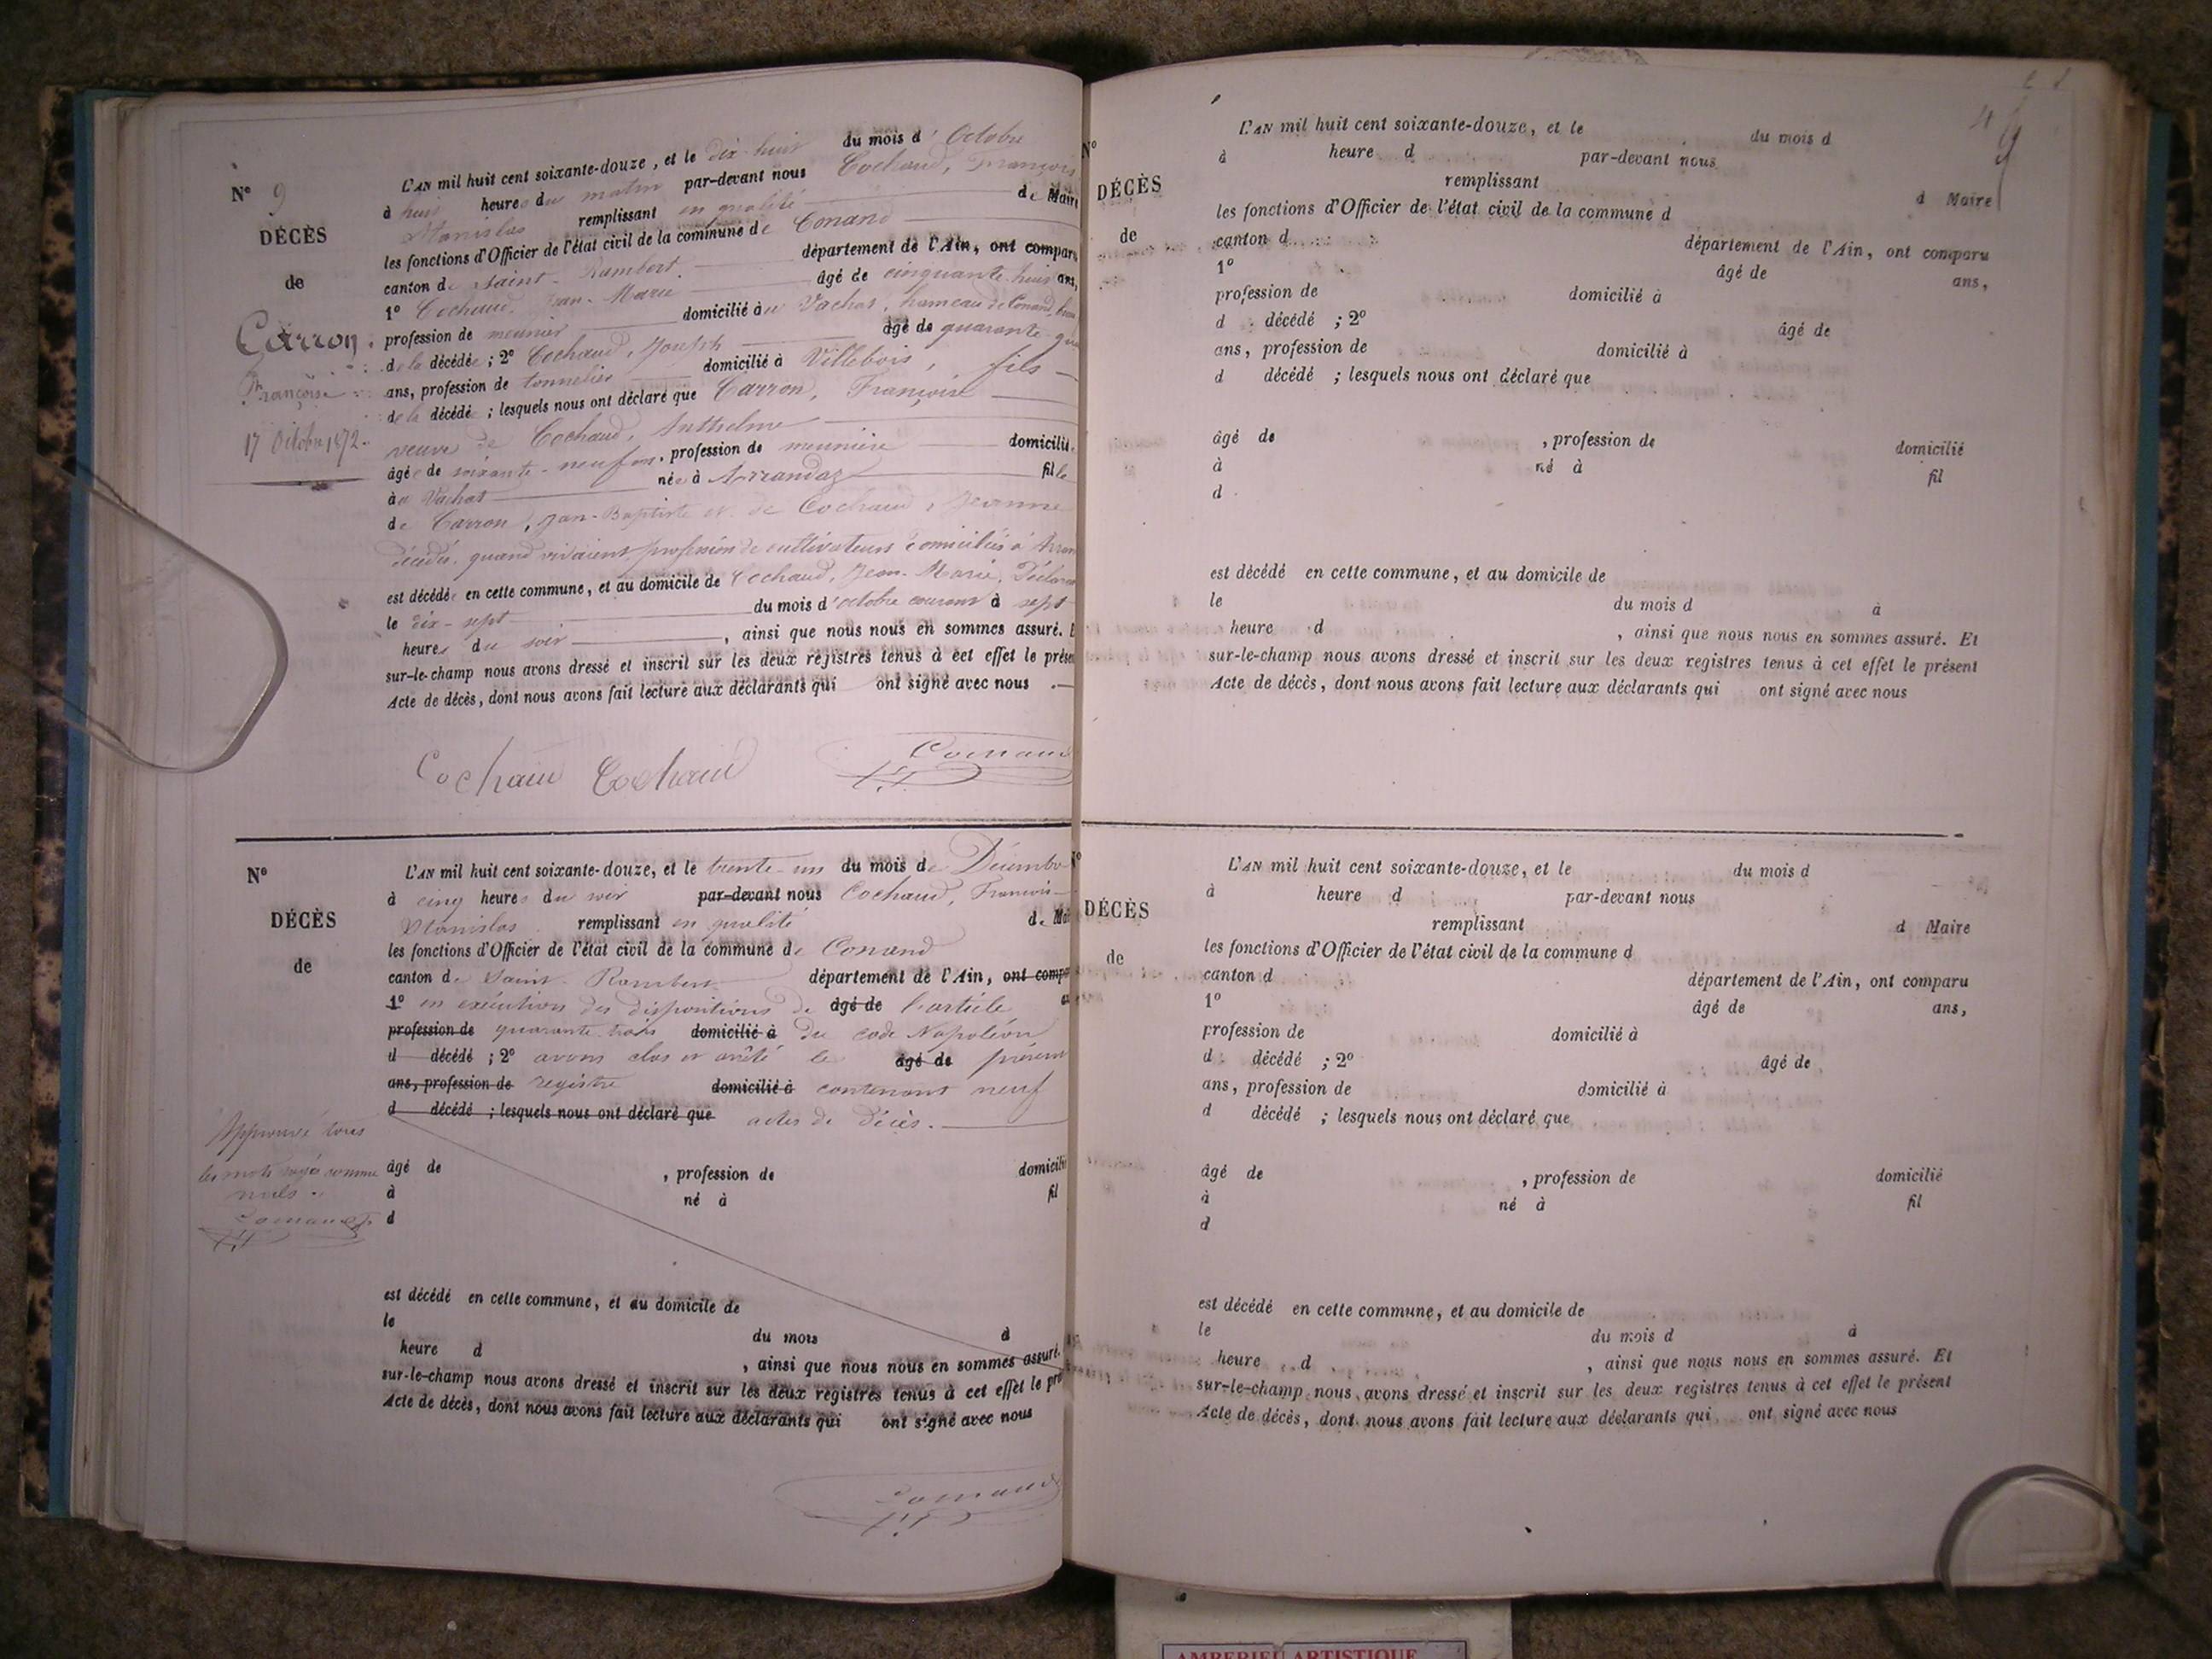 N° 9
DÉCÈS
de
Carron,
Françoise
17 Octobre 1872.
L'AN mil huit cent soixante-douze, et le dix-huit du mois d'Octobre
à huit heures du matin par-devant nous Cochaud, François
Stanislas remplissant en qualité de Maire
les fonctions d'Officier de l'état civil de la commune de Conand
canton de Saint-Rambert département de l'Ain, ont comparu
1° Cochaud, Jean-Marie âgé de cinquante-huit ans,
profession de meunier domicilié au Vachat, hameau de Conand,
de la décédée ; 2° Cochaud, Joseph âgé de quarante
ans, profession de tonnelier domicilié à Villebois, fils
de la décédée ; lesquels nous ont déclaré que Carron, Françoise
veuve de Cochaud, Anthelme
âgée de soixante-neuf ans, profession de meunière domicilié
au Vachat née à Arrandaz fille
de Carron, Jean-Baptiste et de Cochaud, Jeanne
décédés, quand vivaient profession de cultivateurs domiciliés à Arran
est décédée en cette commune, et au domicile de Cochaud, Jean-Marie, Déclarant
le dix-sept du mois d'octobre courant à sept
heures du soir, ainsi que nous nous en sommes assuré. E
sur-le-champ nous avons dressé et inscrit sur les deux registres tenus à cet effet le présen
Acte de décès, dont nous avons fait lecture aux déclarants qui ont signé avec nous .—
Cochaud Cochaud
N°
DÉCÈS
de
L'AN mil huit cent soixante-douze, et le trente-un du mois de Décembre
à cinq heures du soir par-devant nous Cochaud, François
Stanislas remplissant en qualité de Mai
les fonctions d'Officier de l'état civil de la commune de Conand
canton de Saint-Rambert département de l'Ain, ont compa
1° en exécution des dispositions de âgé de l'article
profession de quarante-trois domicilié à du code Napoléon
d décédé ; 2° avons clos et arrêté le âgé de présent
ans, profession de registre domicilié à contenant neuf
d décédé ; lesquels nous ont déclaré que actes de décès.
Approuvé tous
les mots rayés comme
nuls.
âgé de , profession de domicilié
à né à fil
d
est décédé en cette commune, et au domicile de
le du mois d
heure d , ainsi que nous nous en sommes assuré.
sur-le-champ nous avons dressé et inscrit sur les deux registres tenus à cet effet le pré
Acte de décès, dont nous avons fait lecture aux déclarants qui ont signé avec nous
N°
DÉCÈS
de
L'AN mil huit cent soixante-douze, et le du mois d
à heure d par-devant nous
remplissant d Maire
les fonctions d'Officier de l'état civil de la commune d
canton d département de l'Ain, ont comparu
1° âgé de ans,
profession de domicilié à
d décédé ; 2° âgé de
ans, profession de domicilié à
d décédé ; lesquels nous ont déclaré que
âgé de , profession de domicilié
à né à fil
d
est décédé en cette commune, et au domicile de
le du mois d à
heure d , ainsi que nous nous en sommes assuré. Et
sur-le-champ nous avons dressé et inscrit sur les deux registres tenus à cet effet le présent
Acte de décès, dont nous avons fait lecture aux déclarants qui ont signé avec nous
N°
DÉCÈS
de
L'AN mil huit cent soixante-douze, et le du mois d
à heure d par-devant nous
remplissant d Maire
les fonctions d'Officier de l'état civil de la commune d
canton d département de l'Ain, ont comparu
1° âgé de ans,
profession de domicilié à
d décédé ; 2° âgé de
ans, profession de domicilié à
d décédé ; lesquels nous ont déclaré que
âgé de , profession de domicilié
à né à fil
d
est décédé en cette commune, et au domicile de
le du mois d à
heure d , ainsi que nous nous en sommes assuré. Et
sur-le-champ nous avons dressé et inscrit sur les deux registres tenus à cet effet le présent
Acte de décès, dont nous avons fait lecture aux déclarants qui ont signé avec nous
AMBERIEU ARTISTIQUE